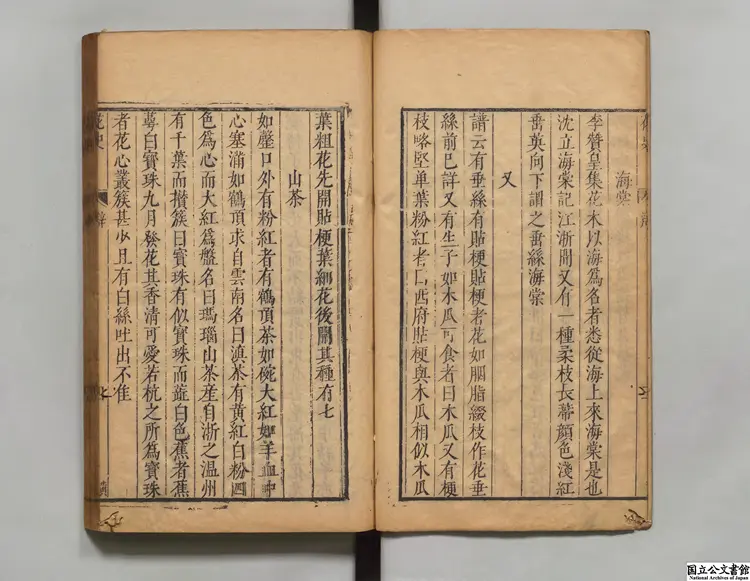 海棠
李贊皇集花木以海爲名者悉從海上來海棠是也
沈立海棠記江浙間又有一種柔枝長蔕顔色淺紅
垂英向下謂之垂絲海棠
又
譜云有垂絲有貼梗貼梗者花如胭脂綴枝作花垂
絲前已詳又有生子如木瓜可食者曰木瓜又有梗
枝略堅单葉粉紅者曰西府貼梗與木瓜相似木瓜
葉粗花先開貼梗葉細花後開其種有七
山茶
如磬口外有粉紅者有鶴頂茶如碗大紅如羊血中
心塞滿如鶴頂求自雲南名曰滇茶有黄紅白粉四
色爲心而大紅爲盤名曰瑪瑙山茶産自浙之温州
有千葉而攢簇曰寶珠有似寶珠而蕋白色蕉者蕉
蕚白寶珠九月發花其香清可愛若杭之所爲寶珠
者花心叢簇甚少且有白絲吐出不准
花史
国立公文書館
National Archives of Japan